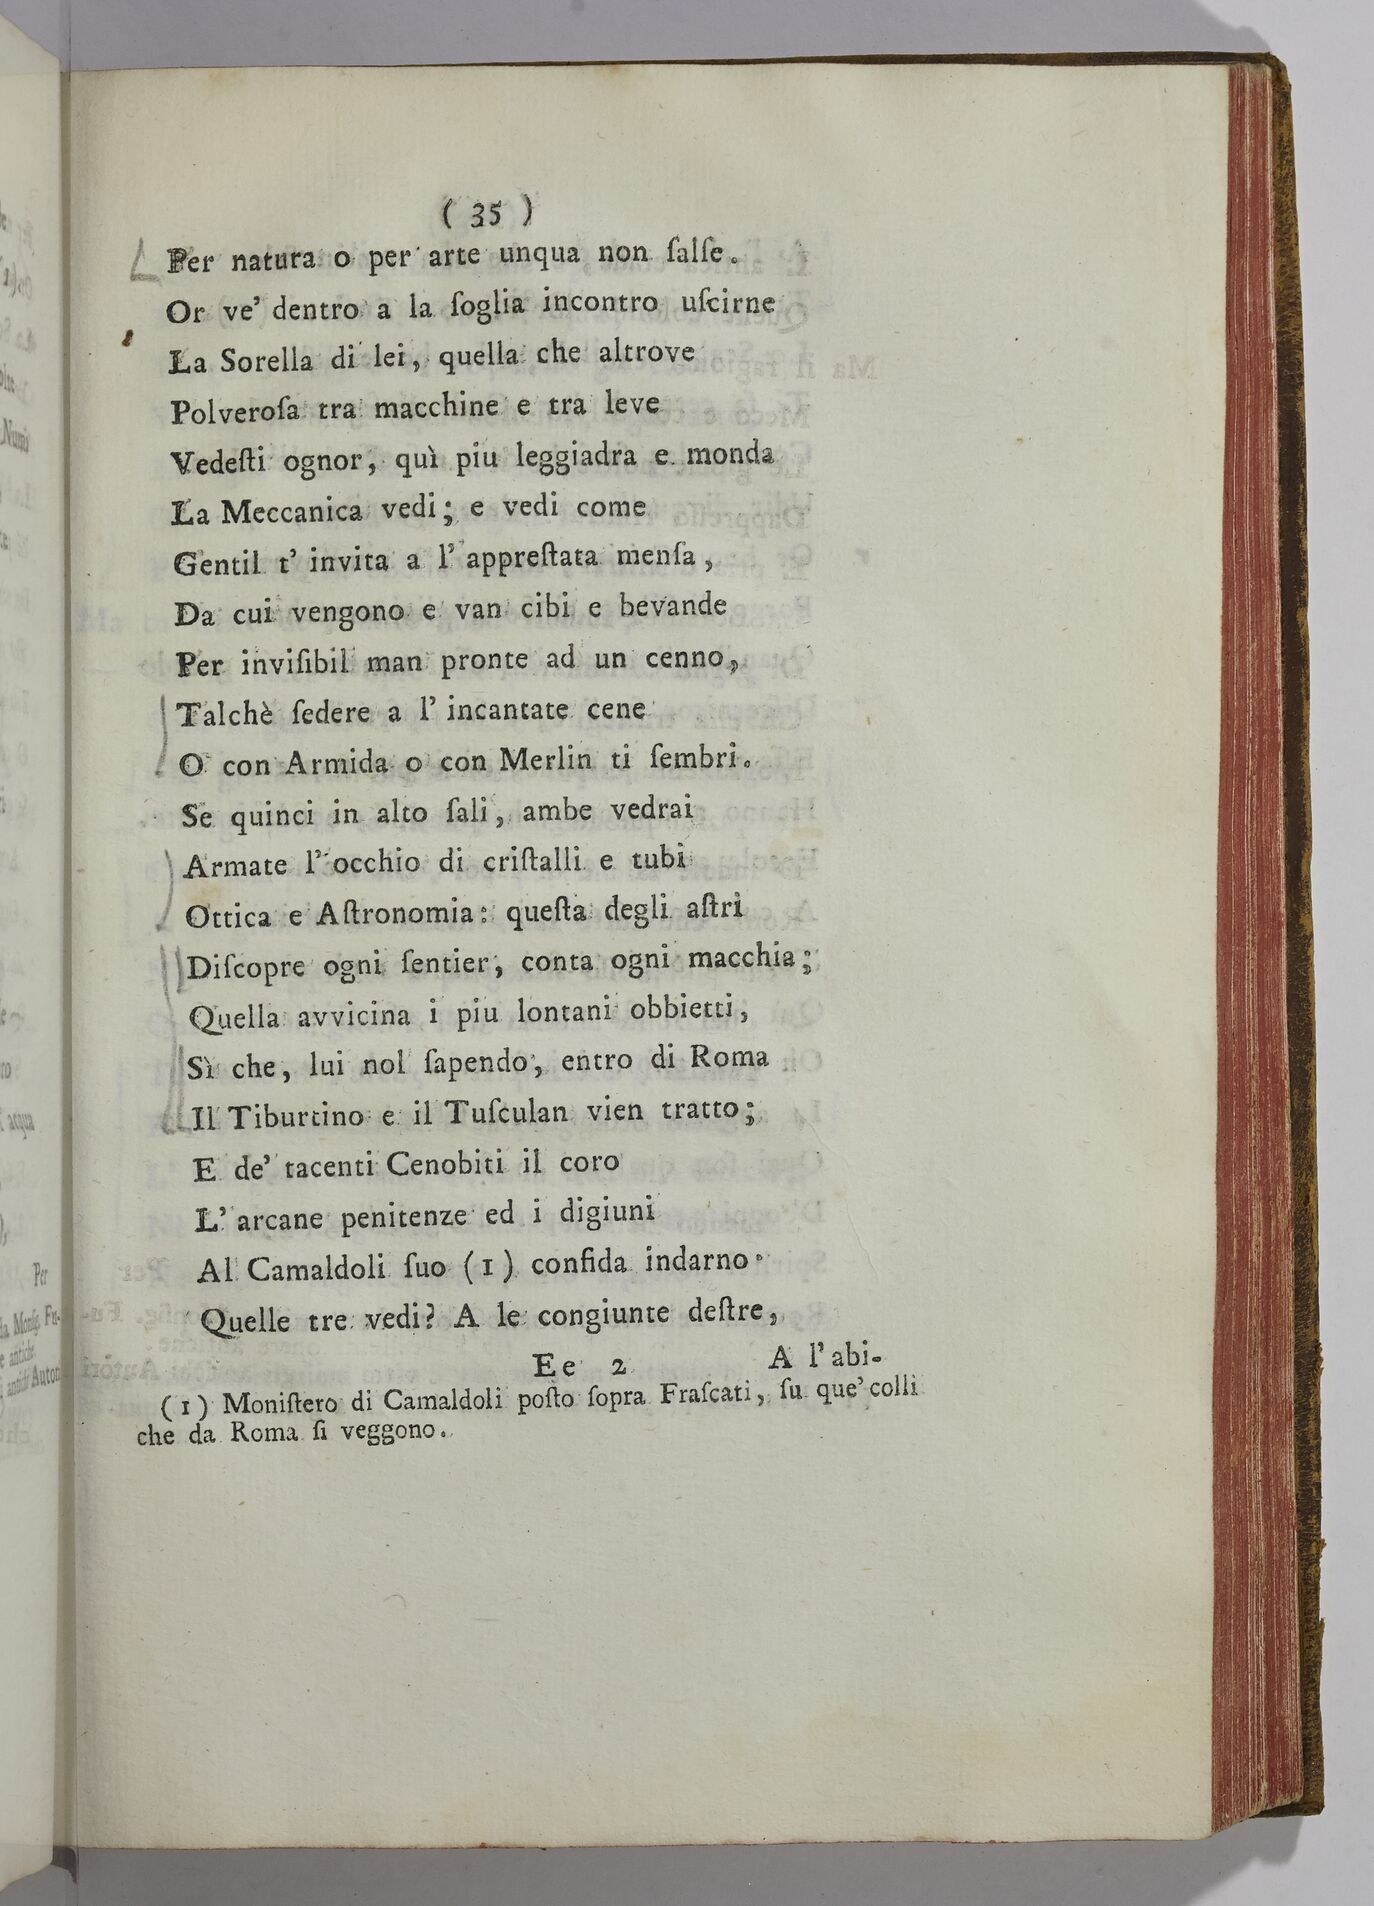 ( 35 )
Per natura o per arte unqua non ſalſe.
Or ve' dentro a la ſoglia incontro uſcirne
La Sorella di lei, quella che altrove
Polveroſa tra macchine e tra leve
Vedeſti ognor, quì piu leggiadra e monda
La Meccanica vedi; e vedi come
Gentil t' invita a l' appreſtata menſa,
Da cui vengono e van cibi e bevande
Per inviſibil man pronte ad un cenno,
Talchè ſedere a l' incantate cene
O con Armida o con Merlin ti ſembri.
Se quinci in alto ſali, ambe vedrai
Armate l' occhio di criſtalli e tubi
Ottica e Aſtronomia: queſta degli aſtri
Diſcopre ogni ſentier, conta ogni macchia;
Quella avvicina i piu lontani obbietti,
Sì che, lui nol ſapendo, entro di Roma
Il Tiburtino e il Tuſculan vien tratto;
E de' tacenti Cenobiti il coro
L' arcane penitenze ed i digiuni
Al Camaldoli ſuo (1) confida indarno.
Quelle tre vedi? A le congiunte deſtre,
Ee 2 A l' abi-
(1) Moniſtero di Camaldoli poſto ſopra Fraſcati, ſu que' colli
che da Roma ſi veggono.